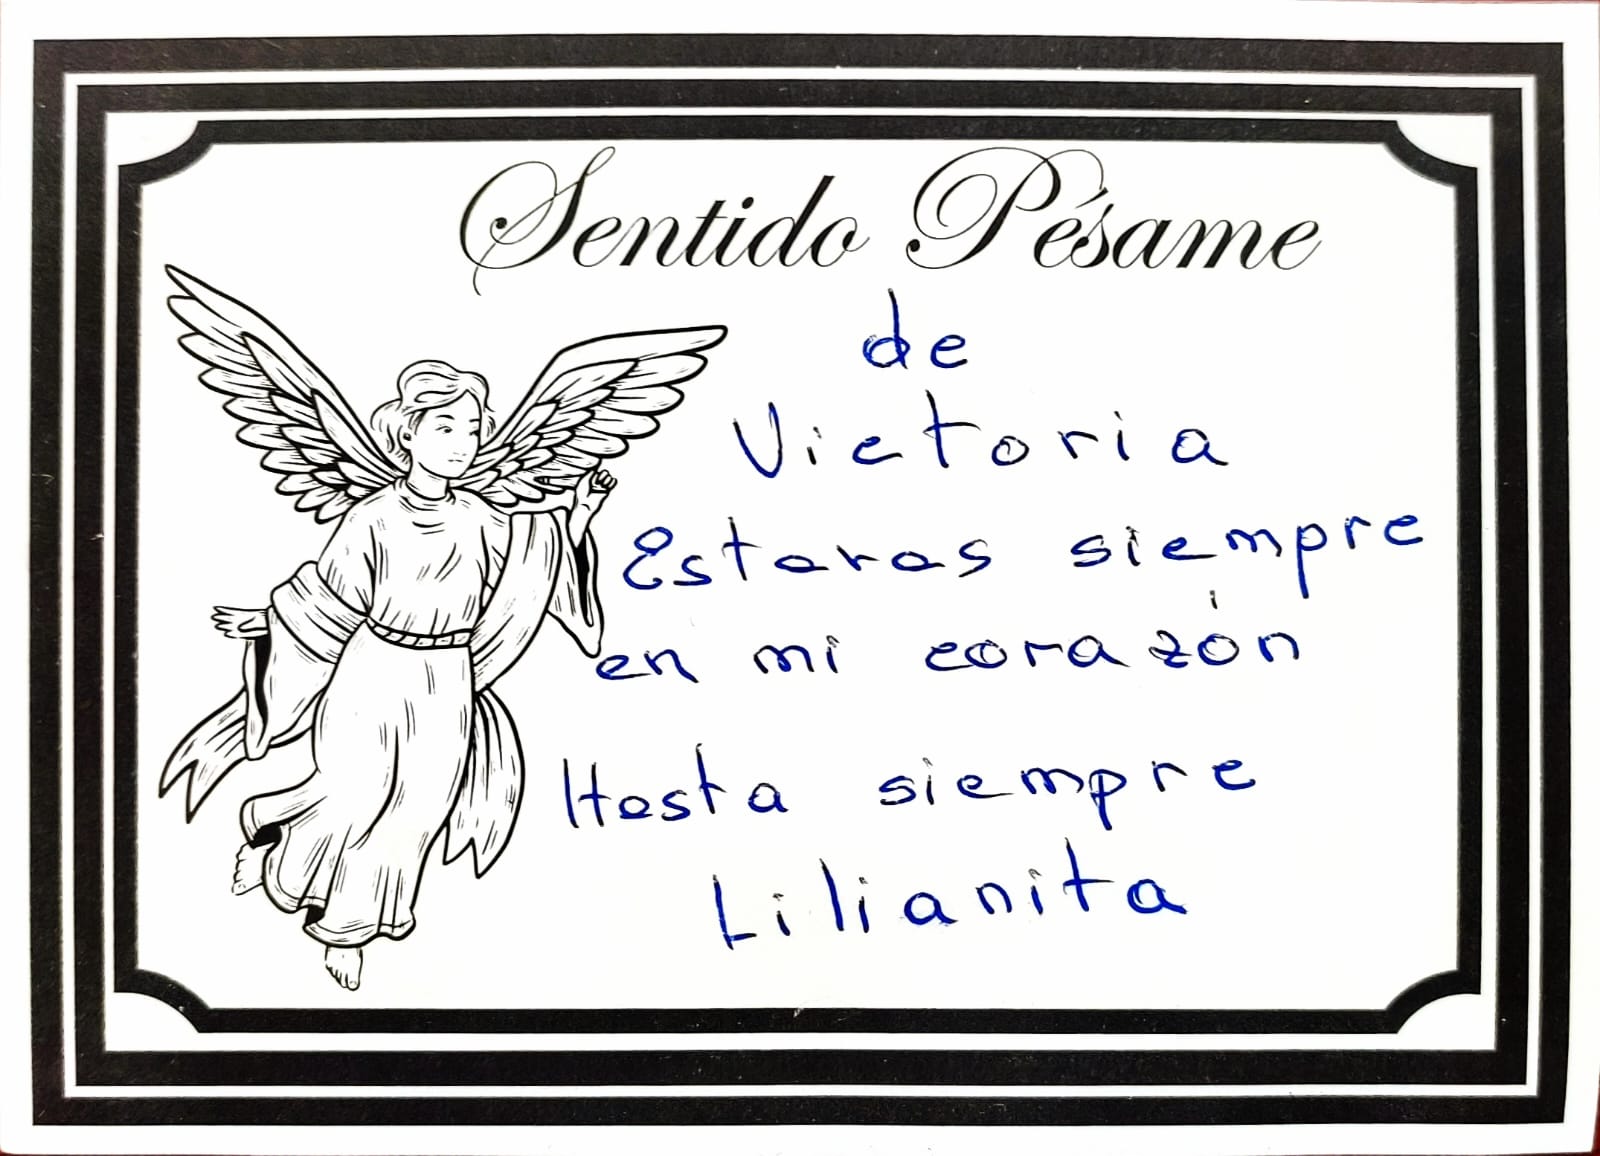 Sentido Pésame
de
Victoria
Estaras siempre
en mi corazón
Hasta siempre
Lilianita